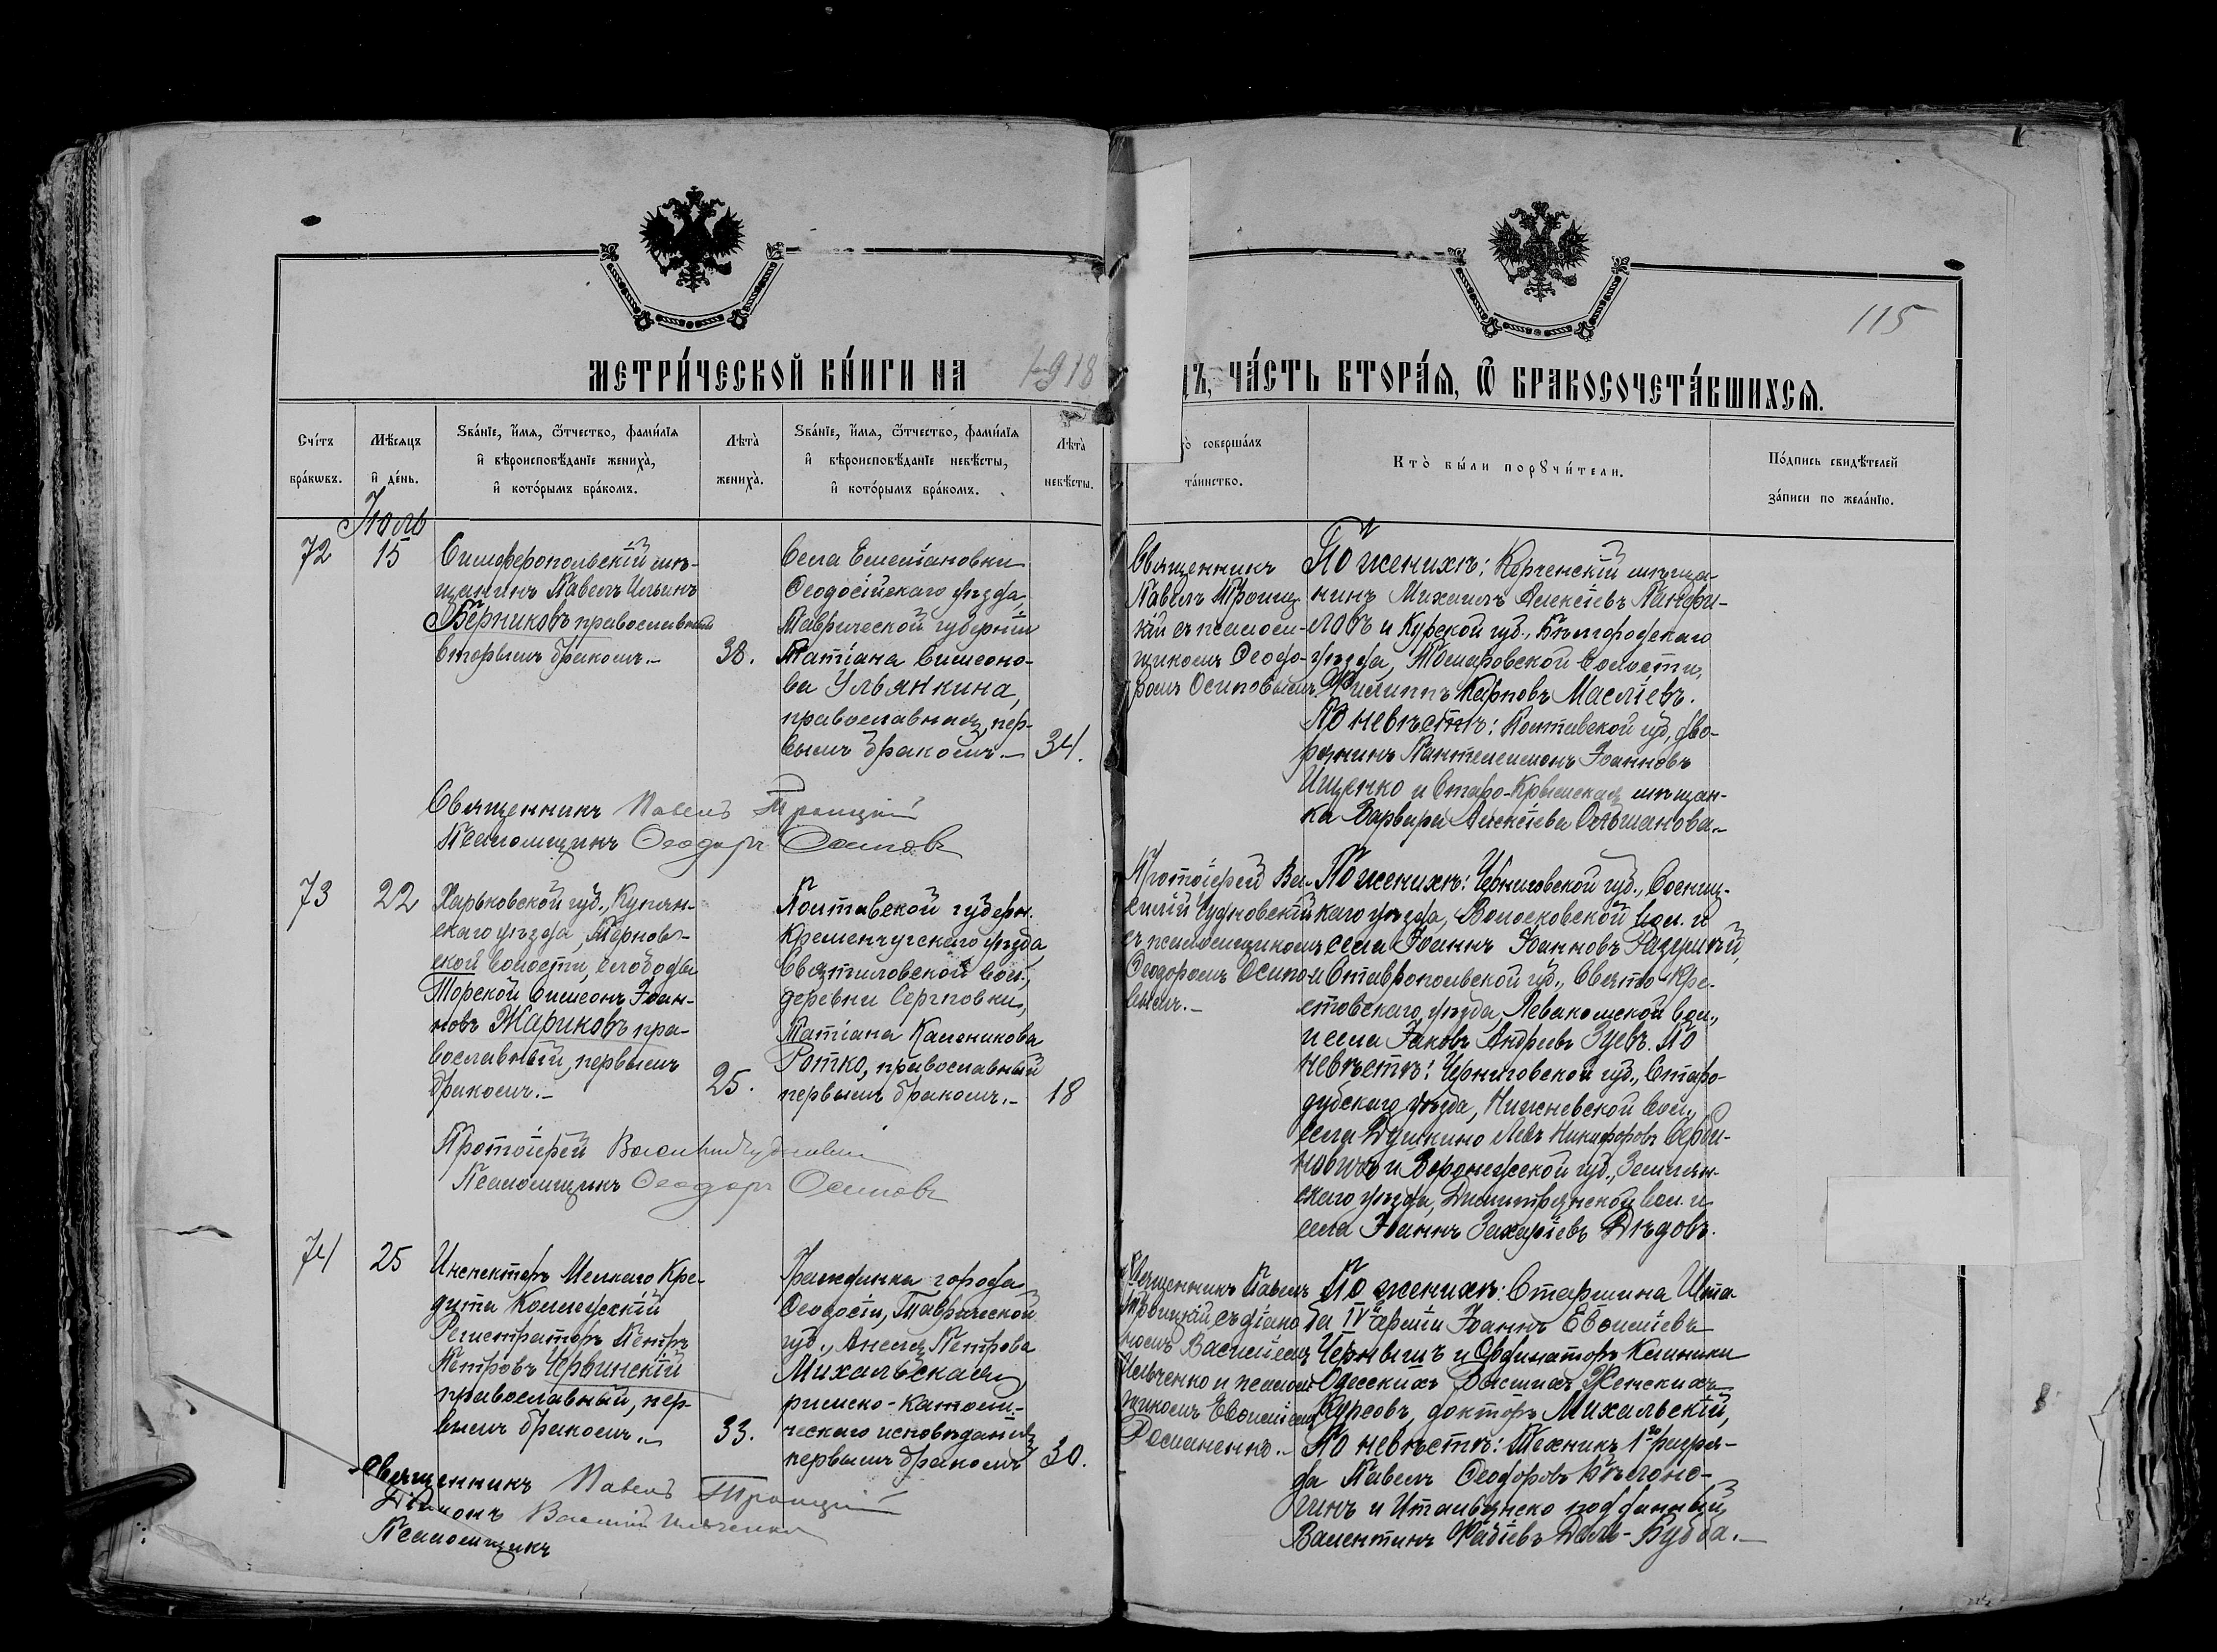 115
МЕТРИ́ЧЕСКОЙ КНИ́ГИ НА 1918
ЧА́СТЬ ВТОРА́Я, Ѡ БРАКОСОЧЕТА́ВШИХСЯ.
Сче́тъ бра́ковъ.
Мѣ́сяцъ и҆ де́нь.
Зва́нїе, и҆́мя, ѻ҆́тчество, фами́лїя
и҆ вѣроисповѣ́данїе жениха̀,
и҆ кото́рымъ бра́комъ.
Лѣта̀ жениха̀.
Зва́нїе, и҆́мя, ѻ҆́тчество, фами́лїя
и҆ вѣроисповѣ́данїе невѣ́сты,
и҆ кото́рымъ бра́комъ.
Лѣта̀ невѣ́сты.
соверша́лъ
та́инство.
Кто̀ бы́ли порꙋчи́тели.
По́дпись свидѣ́телей
за́писи по жела́нїю.
Іюль
72
15
Симферопольскій мѣ-
щанинъ Павелъ Ильинъ
Берниковъ православный
вторымъ бракомъ.-
38.
Села Емельяновки
Ѳеодосійскаго уѣзда,
Таврической губерніи
Татіана Симеоно-
ва Ульянкина,
православная, пер-
вымъ бракомъ.-
34.
Священникъ
Павелъ Троиц-
кій съ псаломи-
щикомъ Ѳеодо-
ромъ Осиповымъ.
По женихѣ: Керченскій мѣща-
нинъ Михаилъ Алексіевъ Панфи-
ловъ и Курской губ., Бѣлгородскаго
уѣзда, Томаровской волости,
Филиппъ Карповъ Масліевъ.
По невѣстѣ: Полтавской губ. дво-
рянинъ Пантелеимонъ Іоанновъ
Ищенко и Старо-Крымская мѣщан-
ка Варвара Алексіева Ольшанова.-
Священникъ Павелъ Троицкій
Псаломщикъ Ѳеодоръ Осиповъ
73
22
Харьковской губ., Купян-
скаго уѣзда, Тернов-
ской волости, слободы
Торской Симеонъ Іоан-
новъ Жариковъ пра-
вославный, первымъ
бракомъ.-
25.
Полтавской губерн.
Кременчугскаго уѣзда,
вол.,
деревни Сергповки,
Татіана Калиникова
Ротко, православный
первымъ бракомъ.-
18
Протоіерей Ва-
силій Чудновскій
съ псаломщикомъ
Ѳеодоромъ Осипо-
вымъ.-
По женихѣ: Черниговской губ., Сосниц-
каго уѣзда, Волосковской вол. и
села Іоаннъ Іоанновъ
и Ставропольской губ., Свято-Кре-
стовскаго уѣзда, Левакомской вол.,
и села Іаковъ Андреевъ Зуевъ. По
невѣстѣ: Черниговской губ., Старо-
дубскаго уѣзда, вол.,
села Душкино Левъ Никифоровъ
и Воронежской губ., Землян-
скаго уѣзда, Димитрянской вол. и
села Іоаннъ Захаріевъ Дѣдовъ.
Протоіерей Василій Чудновскій
Псаломщикъ Ѳеодоръ Осиповъ
74
25
Инспекторъ Мелкаго Кре-
дита Коллежскій
Регистраторъ Петръ
Петровъ Червинскій
православный, пер-
вымъ бракомъ.-
33.
Гражданка города
Ѳеодосіи, Таврической
губ., Анеля Петрова
Михальская,
римско-католи-
ческаго исповѣданія,
первымъ бракомъ
30.
Священникъ Павелъ
Троицкій, съ діако-
номъ Василіемъ
Ильченко и псалом-
щикомъ Евѳиміемъ
Романенко.-
По женихѣ: Старшина Шта-
ба IV серіи Іоаннъ Евѳиміевъ
Чернышъ и Ординаторъ Клиники
Одесскихъ Высшихъ Женскихъ
Курсовъ, докторъ Михальскій,
По невѣстѣ: Техникъ 1го разря-
да Павелъ Ѳеодоровъ Бѣлоно-
гинъ и Итальянско подданный
Валентинъ Фабіевъ Даль-Буббо.-
Священникъ Павелъ Троицкій
Діаконъ Василій Ильченко
Псаломщикъ